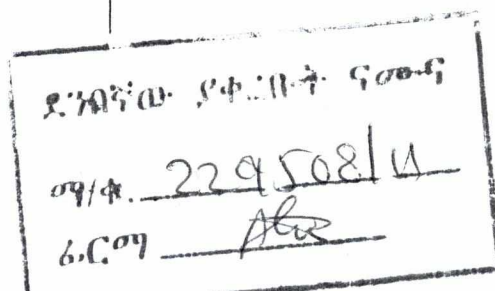 ደንበኛው ያቀረቡት ናሙና
ማ/ቁ. 229508/ሀ
ፊርማ